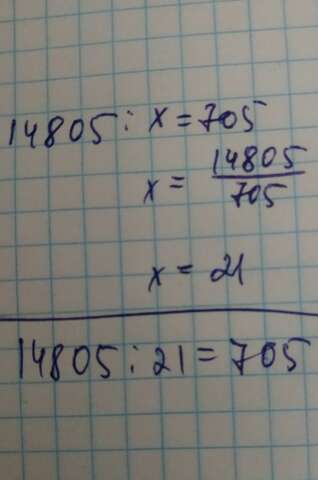 14805 : x = 705
x = 14805/705
x = 21
14805 : 21 = 705